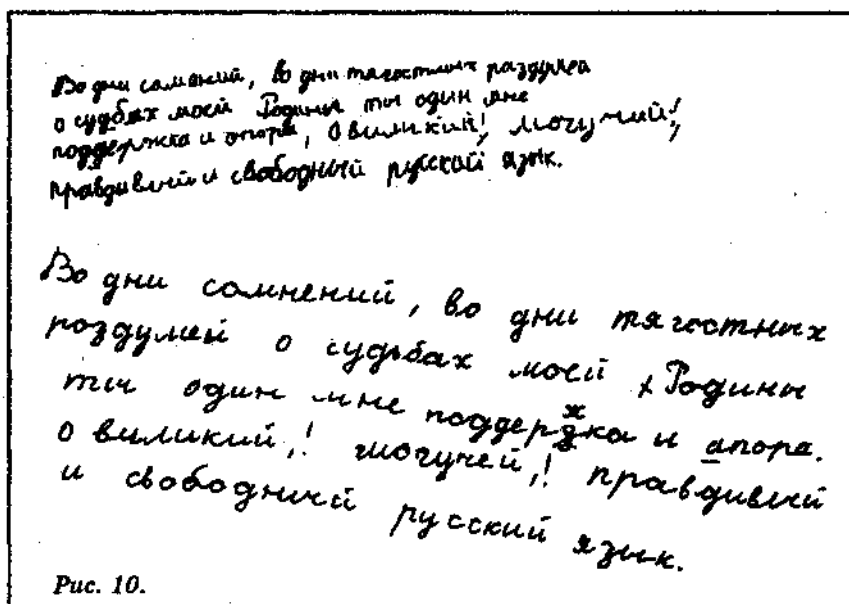 Во дни сомнений, во дни тягостных раздумей
о судьбах моей Родины ты один мне
поддержка и опора, о виликий,! могучий,!
правдивый и свободный русский язык.
Во дни сомнений, во дни тягостных
роздумей о судьбах моей Родины
ты один мне поддержка и апора.
о виликий,! могучей,! правдивый
и свободный русский язык.
Рис. 10.